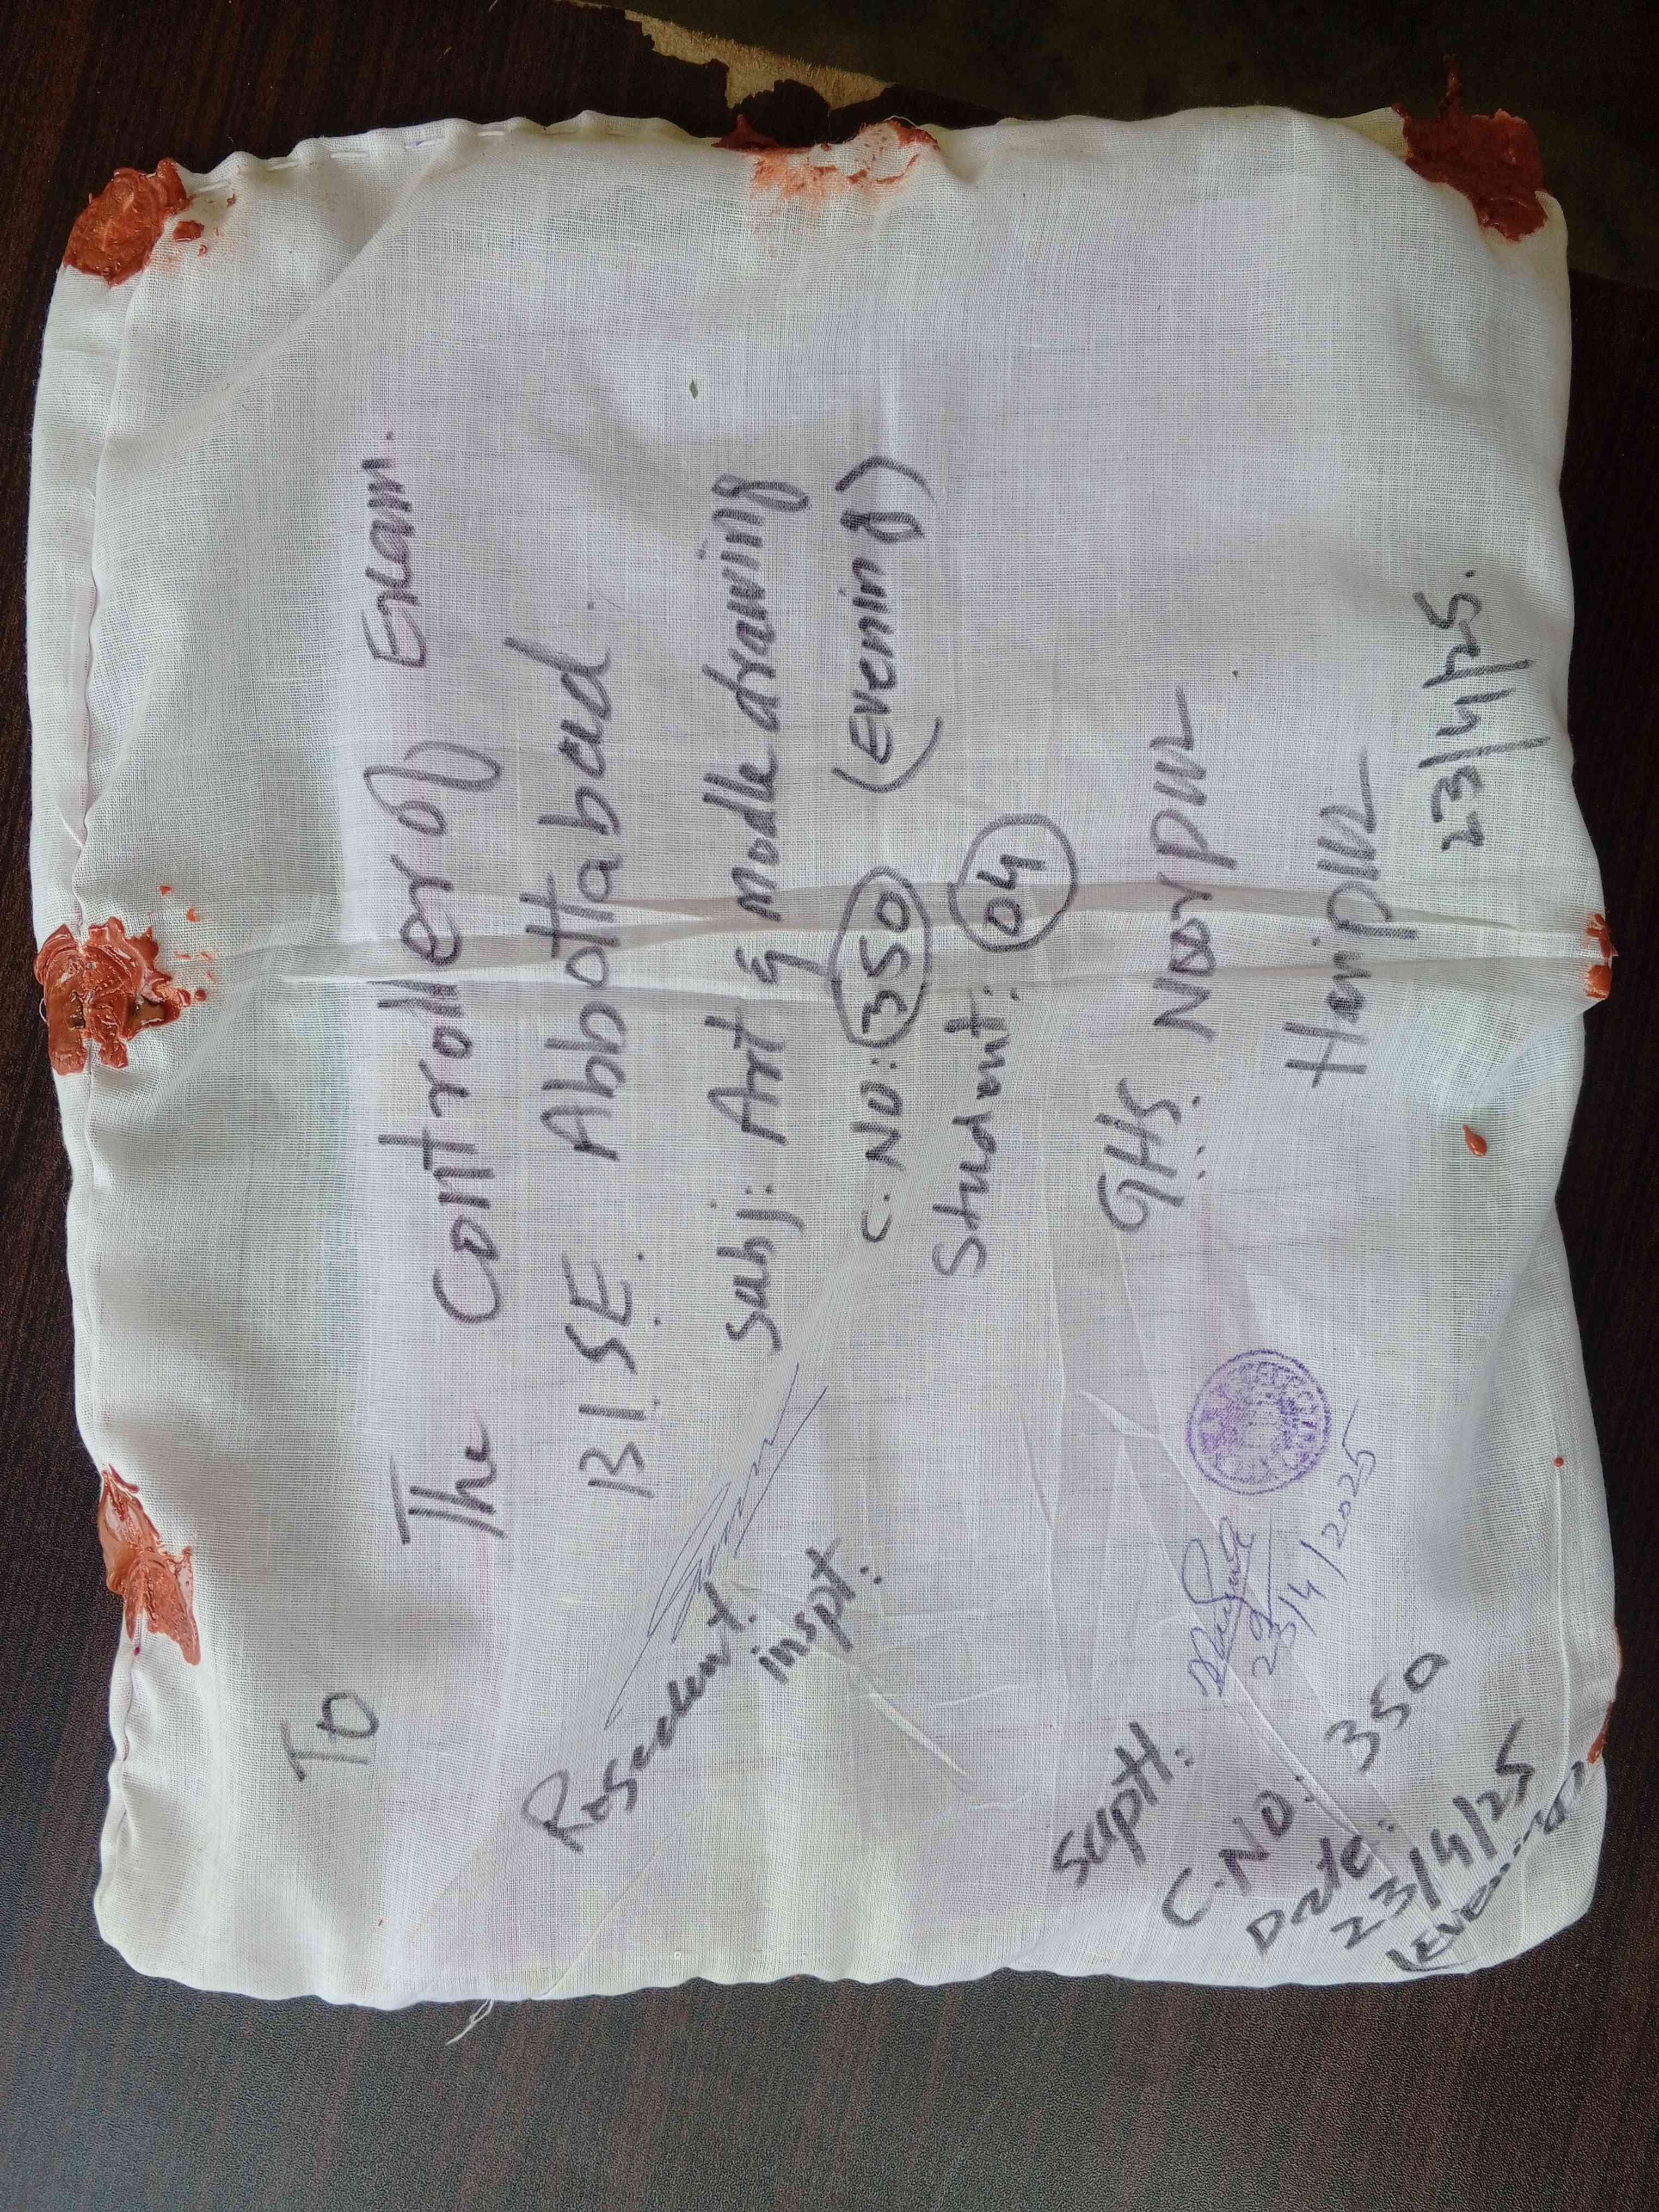 To
The Controller of Exam.
B.I.S.E. Abbottabad.
Subj: Art & modle drawing
C.NO: 350 (Evening)
Student: 04
GHS. Noorpur
Haripur
23/4/25.
Resedent.
inspt:
23/4/2025
Suptt:
C.NO: 350
Date:
23/4/25
(Evening)